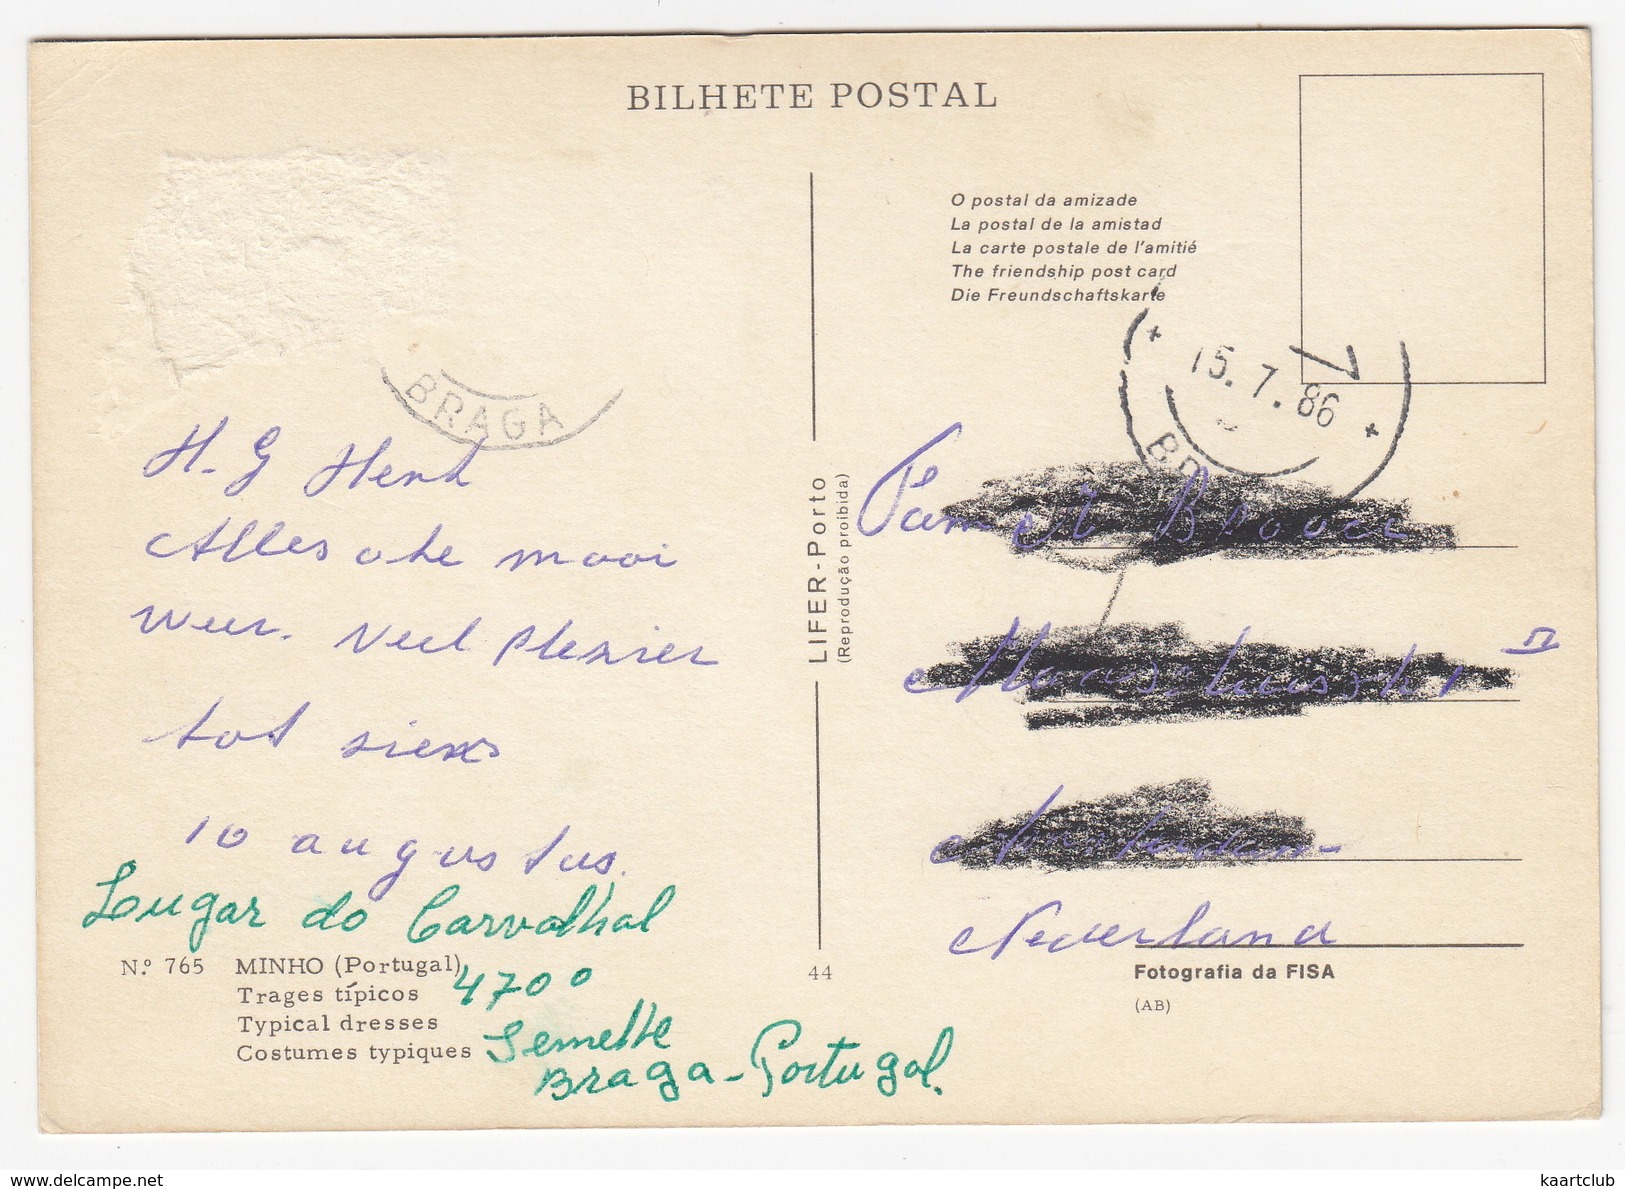 BILHETE POSTAL
O postal da amizade
La postal de la amistad
La carte postale de l'amitié
The friendship post card
Die Freundschaftskarte
15.7.86
BRAGA
H-G Henk
Alles oke mooi
weer. veel plezier
tot siens
10 augustus.
Lugar do Carvalhal
4700
Semelhe
Braga-Portugal.
LIFER-Porto
(Reprodução proibida)
Nederland
N.º 765 MINHO (Portugal)
Trages típicos
Typical dresses
Costumes typiques
44
Fotografia da FISA
(AB)
kaartclub